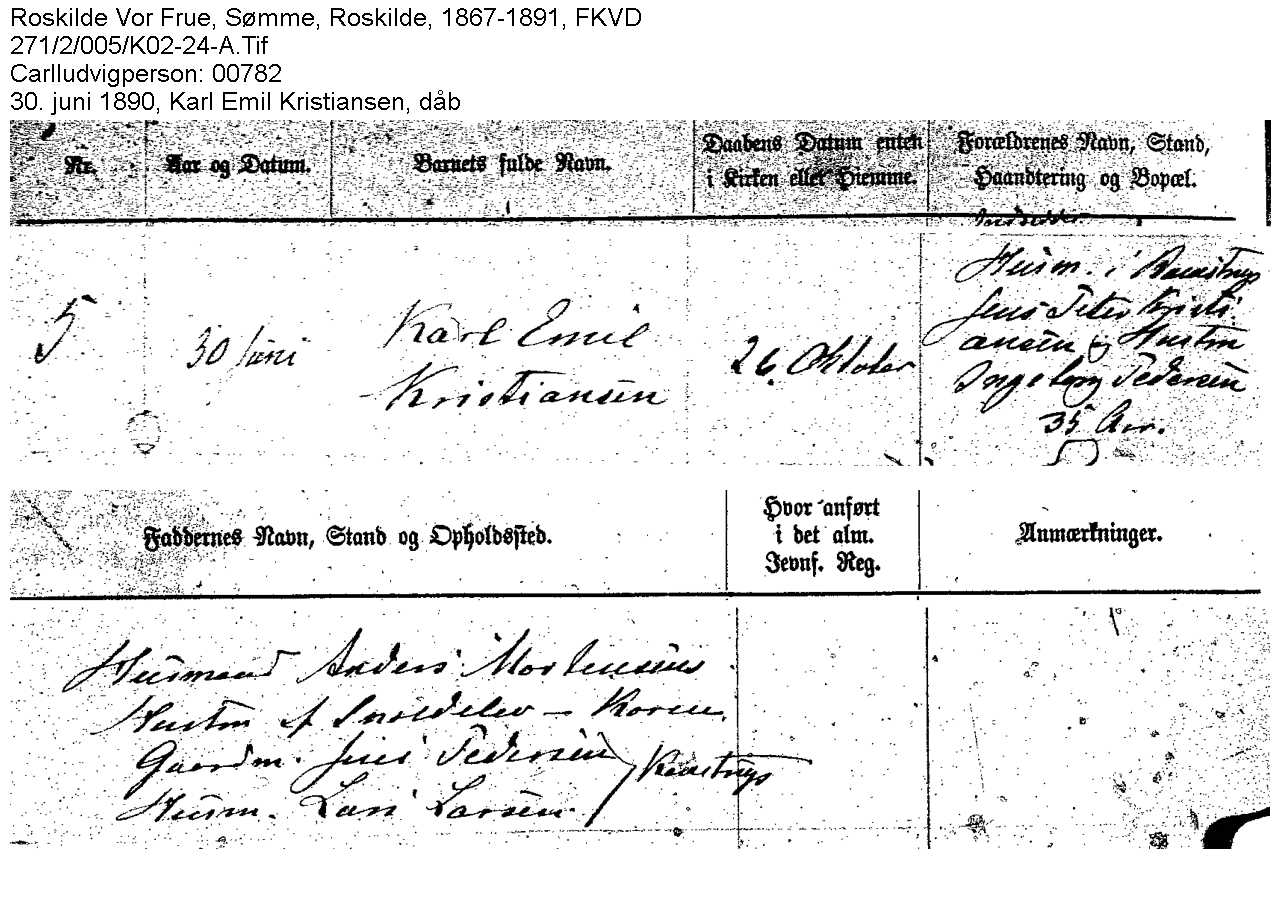 Roskilde Vor Frue, Sømme, Roskilde, 1867-1891, FKVD
271/2/005/K02-24-A.Tif
Carlludvigperson: 00782
30. juni 1890, Karl Emil Kristiansen, dåb
Nr.
Aar og Datum.
Barnets fulde Navn.
Daabens Datum enten
i Kirken eller Hiemme.
Forældrenes Navn, Stand,
Haandtering og Bopæl.
5
30 Juni
Karl Emil
Kristiansen
26 Oktober
Husm. i Raastrup
Jens Peter Kristi
ansen og Hustru
Ingeborg Pedersen
35 Aar.
Faddernes Navn, Stand og Opholdssted.
Hvor anført
i det alm.
Jevnf. Reg.
Anmærkninger.
Husmand Anders Mortensens
Hustru af Snoldelev - Karen.
Gaardm. Jens Pedersen
Husm. Lars Larsen.
Raastrup